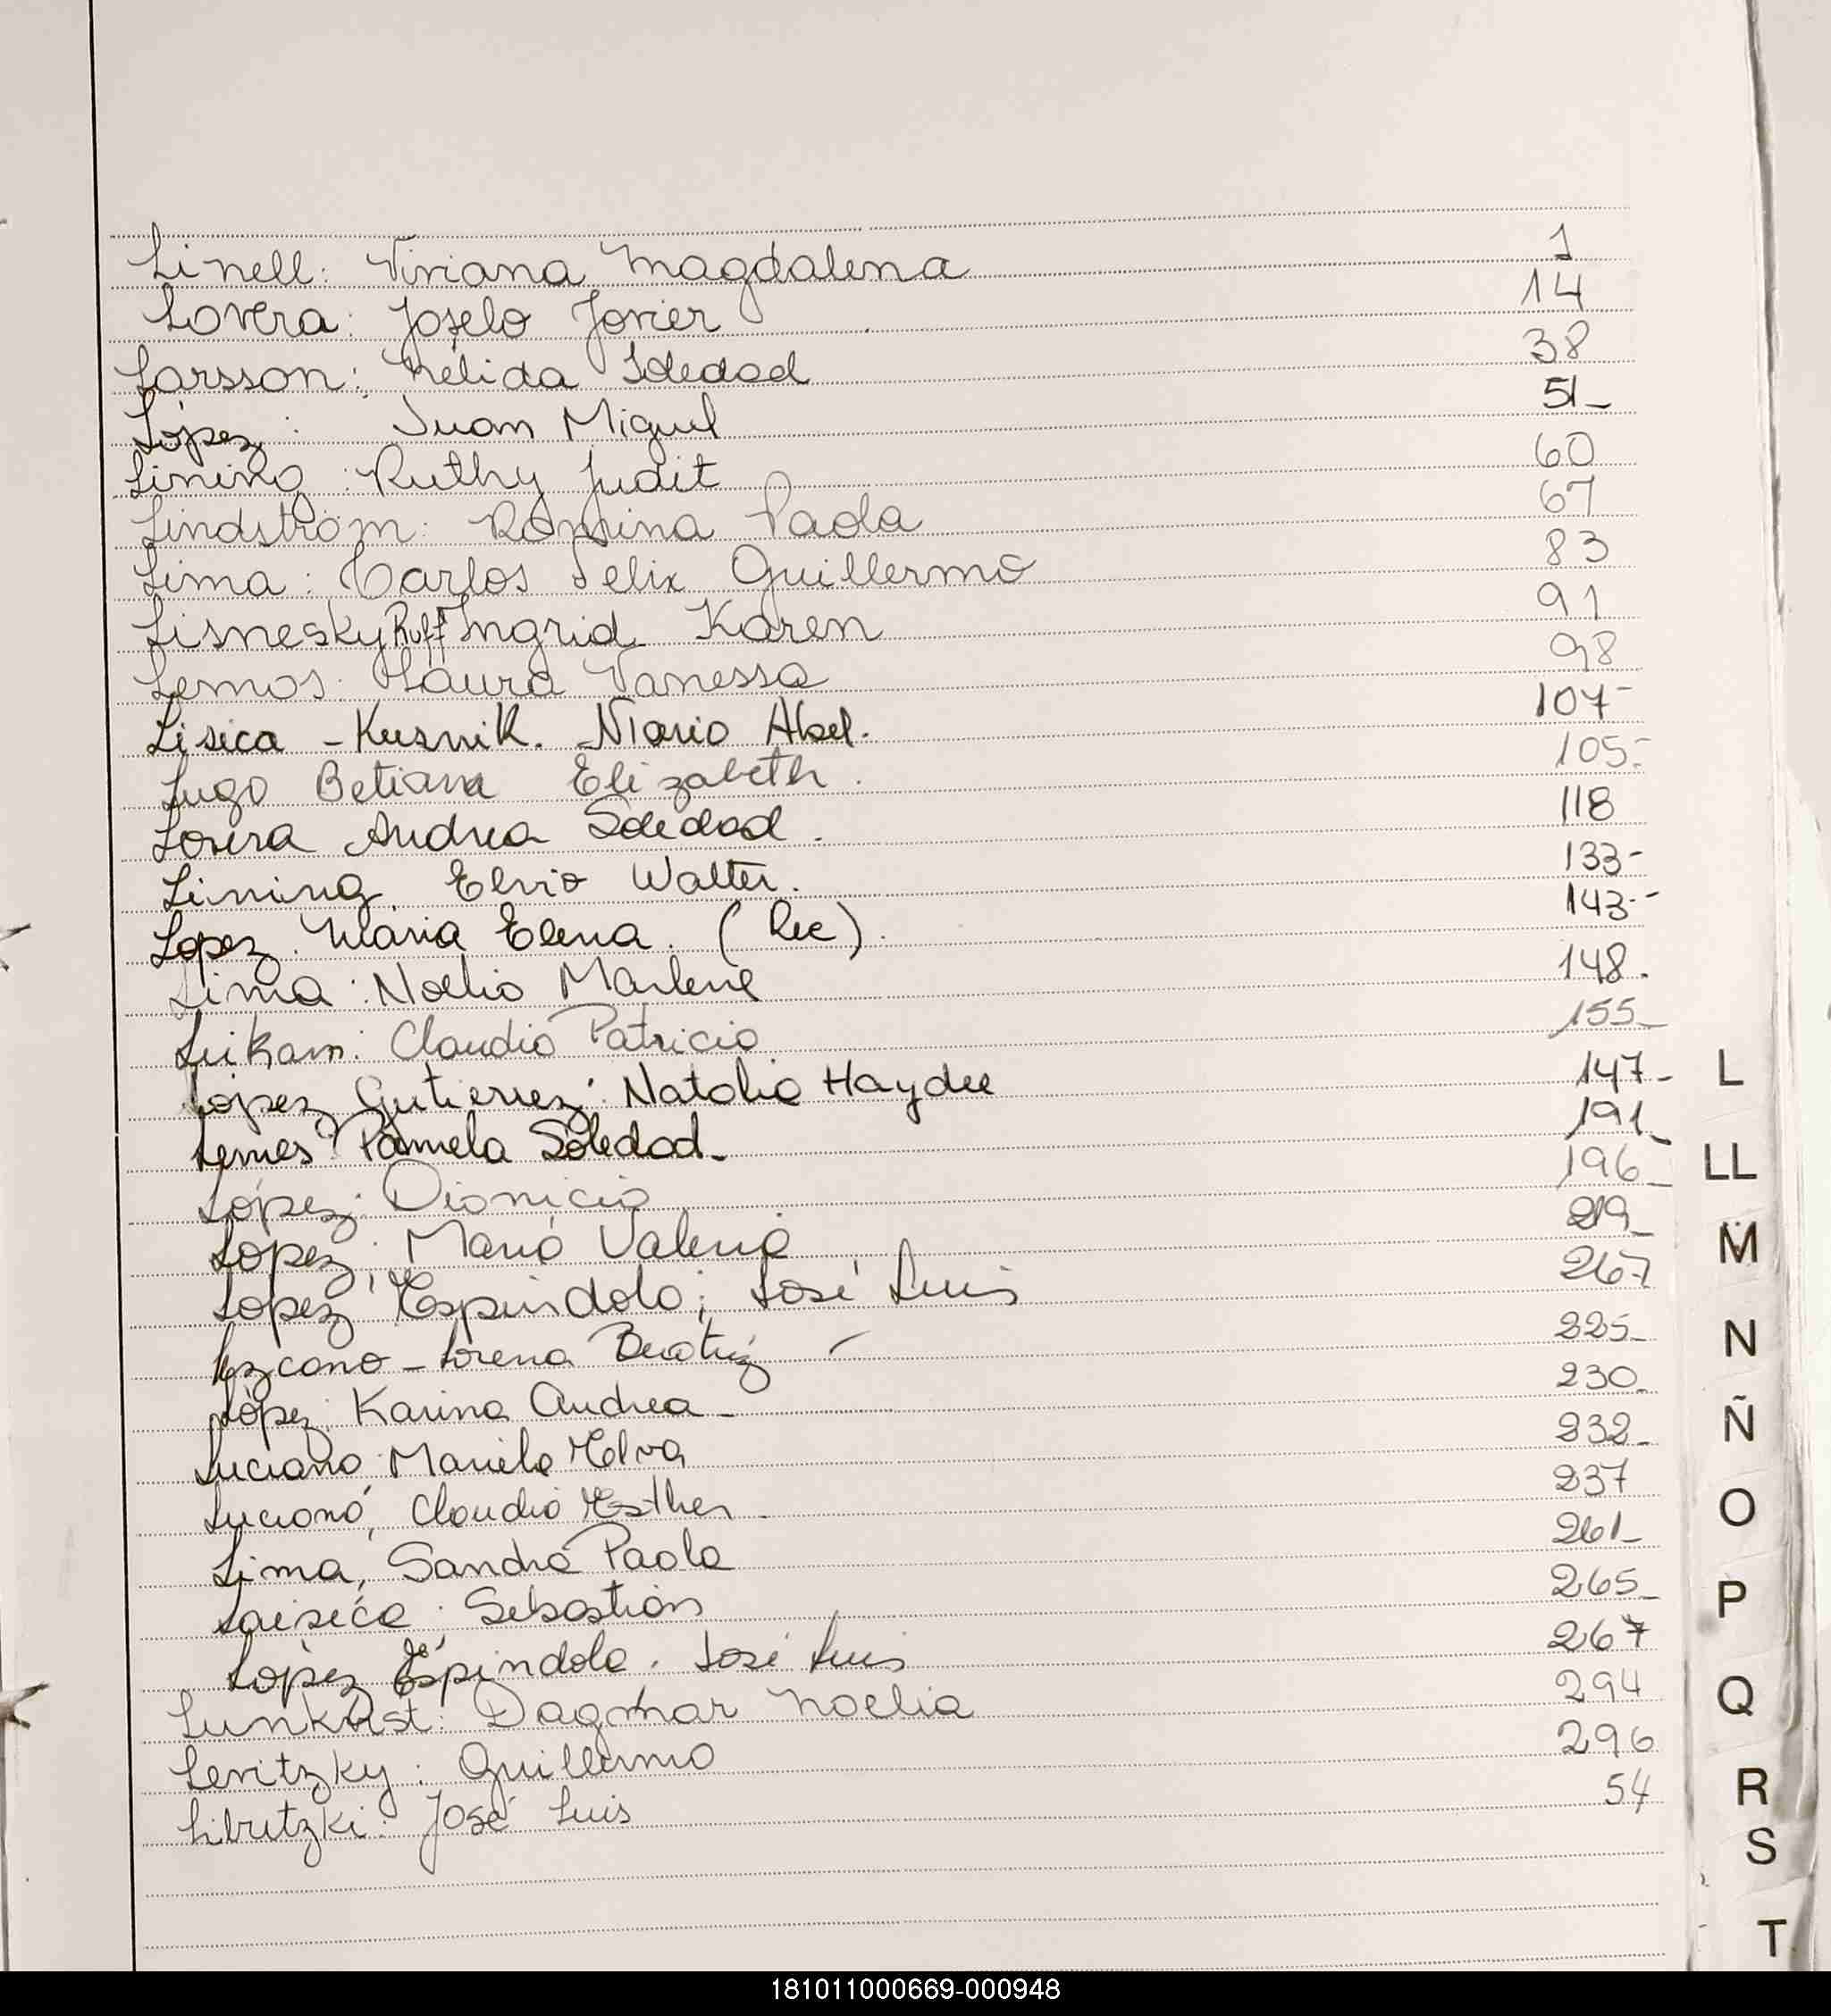 Linell: Viviana Magdalena 1
Lovera: Joselo Javier 14
Larsson: Nélida Soledad 38
López: Juan Miguel 51-
Lining: Ruthy Judit 60
Lindström: Romina Paola 67
Lima: Carlos Felix Guillermo 83
Lisnesky Ruff Ingrid Karen 91
Lemos: Laura Vanessa 98
Lisica - Kusnik. Mario Abel. 107-
Lugo Betiana Elizabeth. 105-
Lovera Andrea Soledad. 118
Lining Elvio Walter. 133-
Lopez. Maria Elena. (Rec). 143-
Lima: Noelia Marlene 148.
Leikam: Claudio Patricio 155-
López Gutierrez: Natalia Haydee 147-
Lemes: Pamela Soledad- 191-
López: Dionicio 196-
López; María Valeria 219-
López Espindola; José Luis 267
Lezcano - Lorena Beatriz 225-
López: Karina Andrea- 230-
Luciano Mariela Elva 232-
Luciano, Claudia Esther 237
Lima, Sandra Paola 261-
Sebastián 265-
López Espindola. José Luis 267
Lunkvist: Dagmar Noelia 294
Levitzky: Guillermo 296
Libutzki: José Luis 54
L
LL
M
N
Ñ
O
P
Q
R
S
T
181011000669-000948